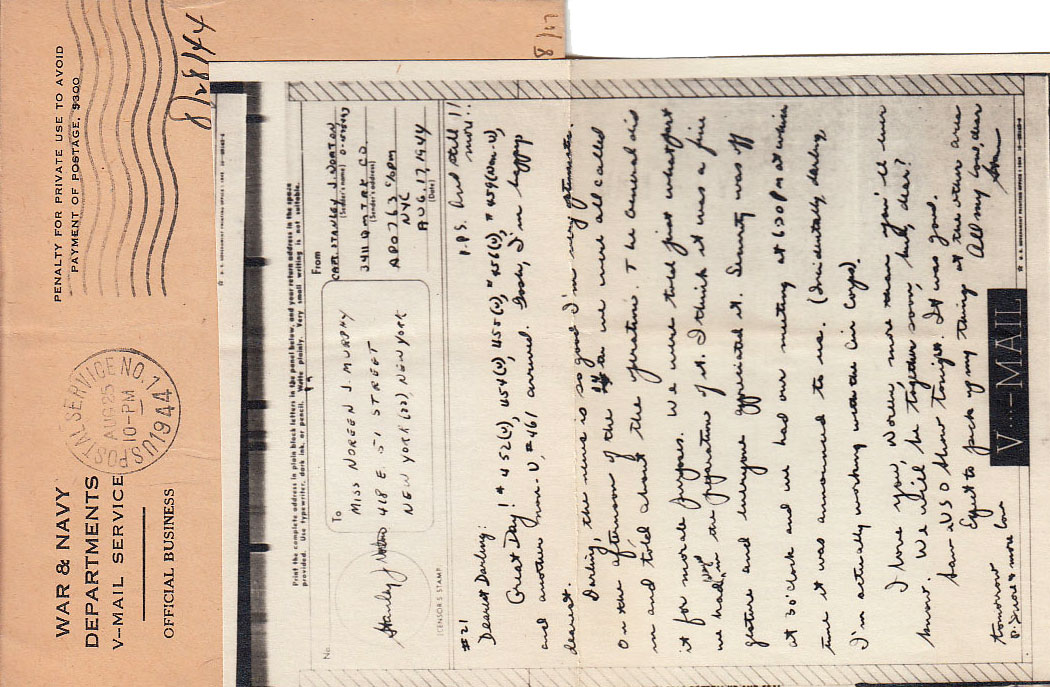 WAR & NAVY
DEPARTMENTS
V-MAIL SERVICE
OFFICIAL BUSINESS
US POSTAL SERVICE NO. 1
AUG 25
10-PM
1944
PENALTY FOR PRIVATE USE TO AVOID
PAYMENT OF POSTAGE, $300
8/28/44
8/17
Print the complete address in plain block letters in the panel below, and your return address in the space
provided. Use typewriter, dark ink, or pencil. Write plainly. Very small writing is not suitable.
No.
Stanley J Norton
(CENSOR'S STAMP)
To
MISS NOREEN J. MURPHY
418 E. 51 STREET
NEW YORK (22) NEW YORK
From
CAPT. STANLEY J. NORTON
(Sender's name)
3411 ORD M TRK CO.
(Sender's address)
APO 763 c/o PM
NYC
AUG. 17, 1944
(Date)
#21
P.P.S. And still 11
more!!
Dearest Darling:
Great Day! # 452(V), 454(V), 455(V), #456(V), #459(Non-V),
and another none-V, #461 arrived. Gosh, I'm happy
dearest.
Darling, the news is so good I'm very optimistic.
On the afternoon of the we were all called
in and told about the operation. The General did
it for morale purposes. We were told just what part
we had in the preparation of it. I think it was a fine
gesture and everyone appreciated it. Security was off
at 3 o'clock and we had our meeting at 630 PM at which
time it was announced to us. (Incidentally, darling,
I'm actually working with the Air Corps).
I love you, Noreen, more than you'll ever
know. We will be together soon, huh, dear?
Saw USO show tonight. It was good.
Expect to pick up my things at the other area
tomorrow All my love, dear
P.S. more love
V···— MAIL